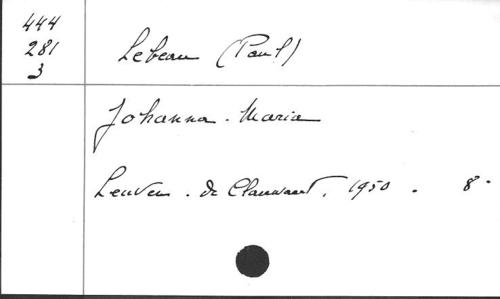 444
281
3
Lebeau (Paul)
Johanna-Maria
Leuven. De Clauwaert. 1950. 8°